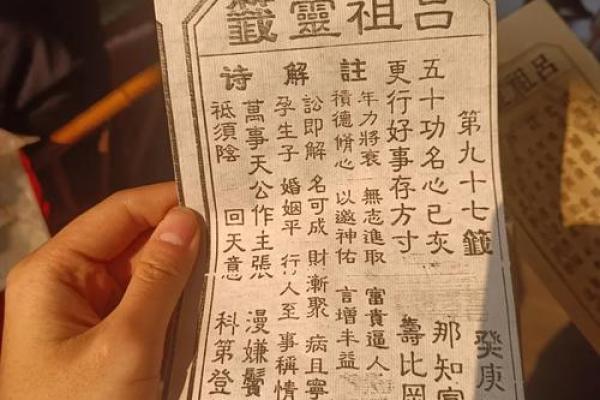 呂祖靈籤
第九十七籤 癸庚
五十功名心已灰 那知富
更行好事存方寸 壽比岡
註
年力將衰 無志進取 富貴逼人
積德脩心 以邀神佑 言增丰益
解
訟即解 名可成 財漸聚 病且寧
孕生子 婚姻平 行人至 事稱情
诗
萬事天公作主張 漫嫌鬢
祗須陰 回天意 科第登
呂祖